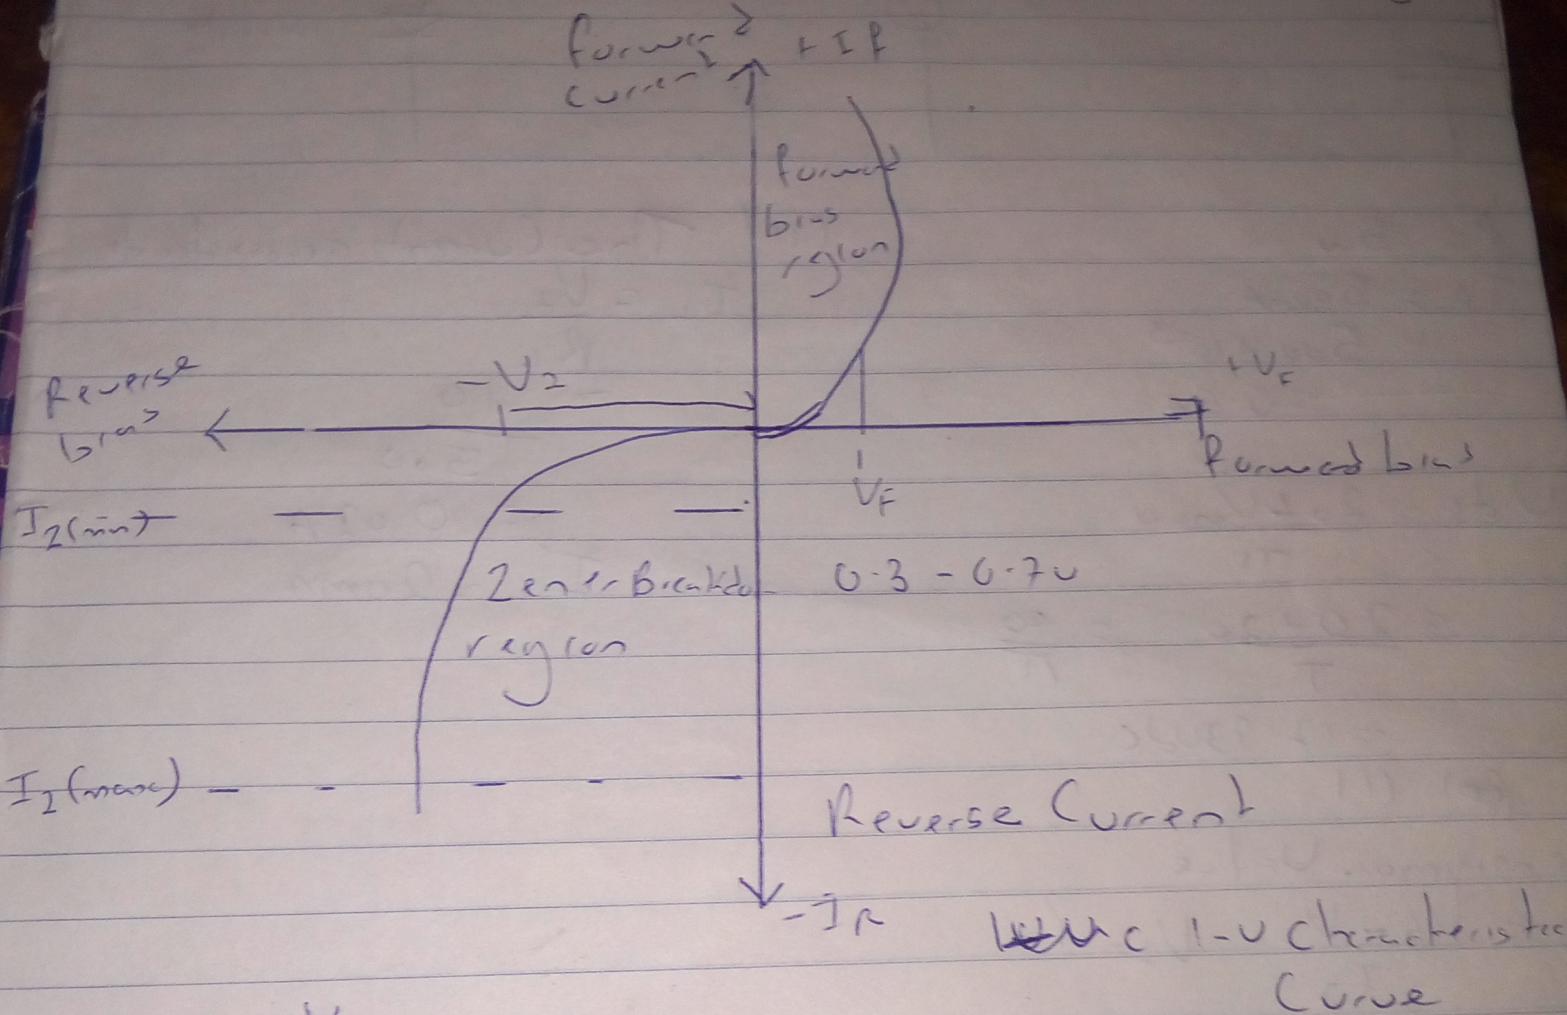 Forward
Current
+ IF
Forward
bias
region
Reverse
bias
-VZ
+VF
Forward bias
VF
IZ(min)
Zener Breakdo
region
0.3 - 0.7v
IZ(max)
Reverse Current
-IR
I-V Characteristic
Curve